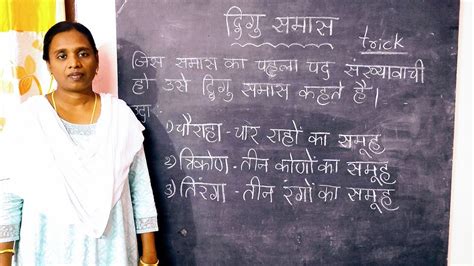 द्विगु समास
trick
जिस समास का पहला पद संख्यावाची
हो उसे द्विगु समास कहते हैं।
उदा॰
1) चौराहा - चार राहों का समूह
2) त्रिकोण - तीन कोणों का समूह
3) तिरंगा - तीन रंगों का समूह